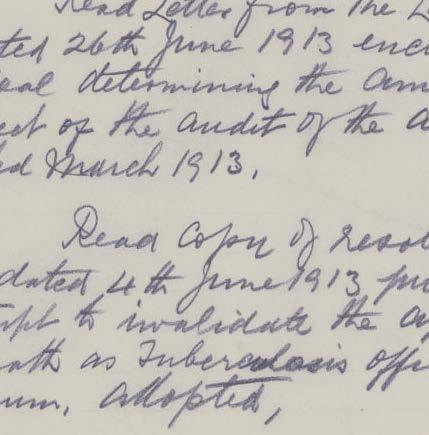 Read Letter from the L
ted 26th June 1913 enc
eal determining the am
ect of the audit of the a
ed March 1913.
Read Copy of resol
dated 4th June 1913 pr
mpt to invalidate the ap
ath as Tuberculosis offi
um, adopted,